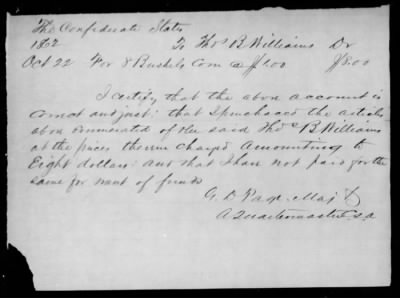 The Confederate States
1862 To Thos B Williams Dr
Oct 22 For 8 Bushels Corn @ $1.00 $8.00
I certify that the above account is
correct and just: that I purchased the articles
above enumerated of the said Thos B Williams
at the prices therein charged amounting to
Eight dollars: and that I have not paid for the
same for want of funds
G. D Page Maj &
A Quartermaster